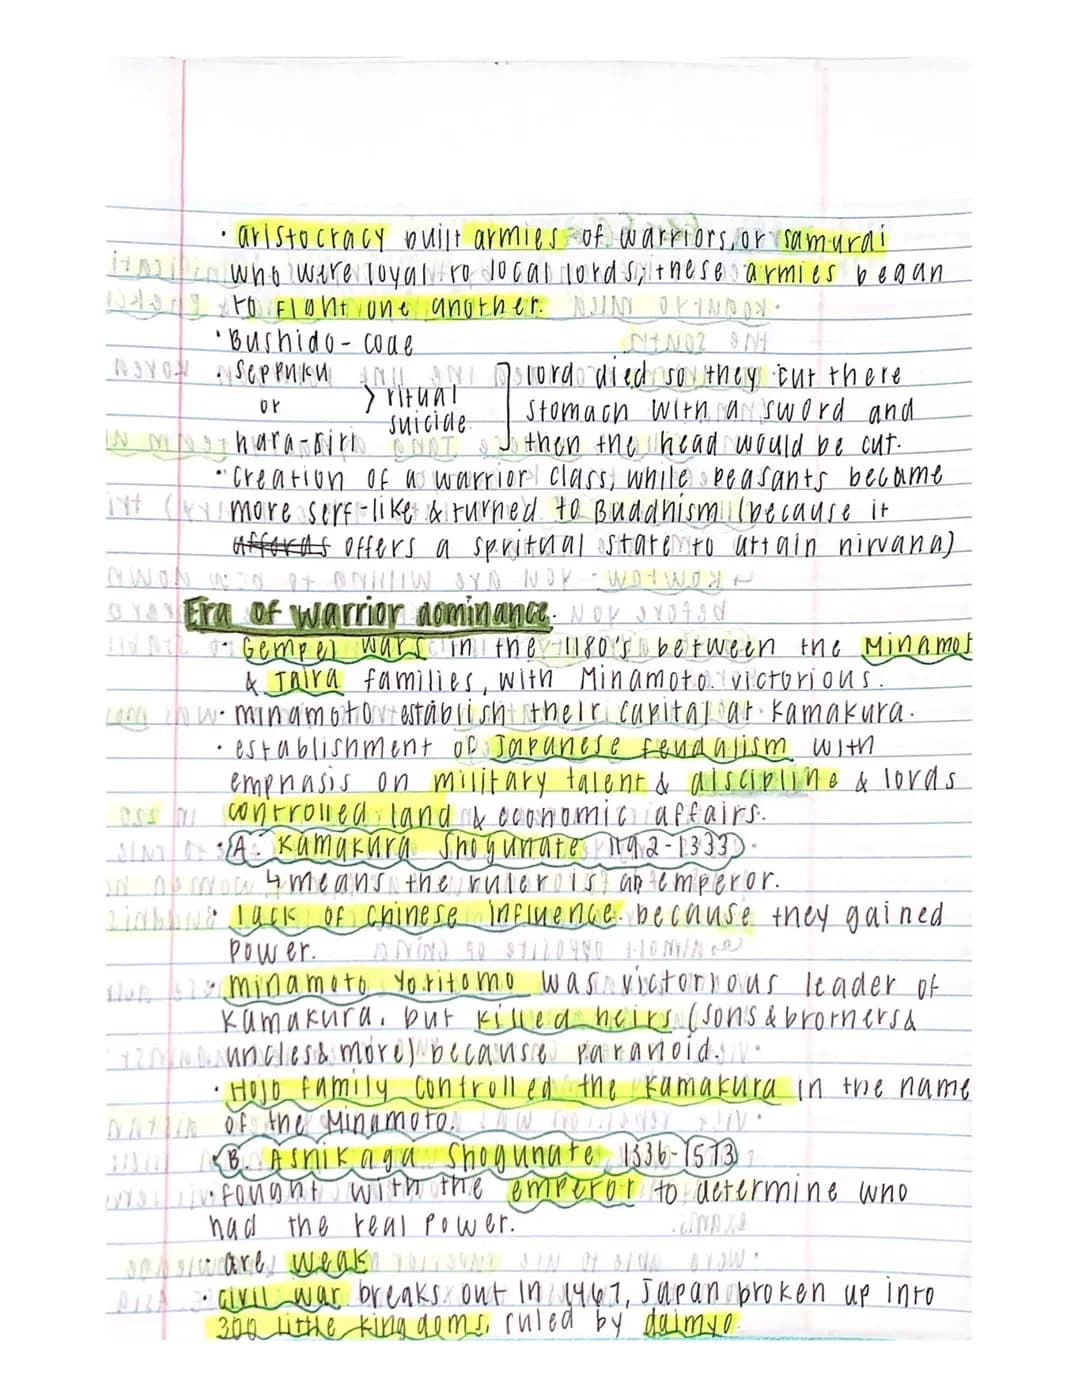 · aristocracy built armies of warriors, or samurai
who were loyal to local lords; these armies began
to fight one another.
· Bushido - code
· Seppuku
or
hara-kiri
> ritual
suicide
lord died so they cut there
stomach with a sword and
then the head would be cut.
· creation of a warrior class, while peasants became
more serf-like & turned to Buddhism (because it
affords offers a spritual state to attain nirvana)
Era of warrior dominance.
· Gempei Wars in the 1180's between the Minamot
& Taira families, with Minamoto victorious.
· minamoto establish their capital at Kamakura.
· establishment of Japanese feudalism with
emphasis on military talent & discipline & lords
controlled land & economic affairs.
· A. Kamakura Shogunate 1192-1333
↳ means the ruler is an emperor.
· lack of chinese influence because they gained
power.
· minamoto Yoritomo was victorious leader of
Kamakura, but killed heirs (sons & brothers &
uncles & more) because paranoid.
· Hojo family controlled the Kamakura in the name
of the Minamoto.
B. Ashikaga Shogunate 1336-1573
· fought with the emperor to determine who
had the real power.
· are weak
· civil war breaks out in 1467, Japan broken up into
300 little kingdoms, ruled by daimyo.